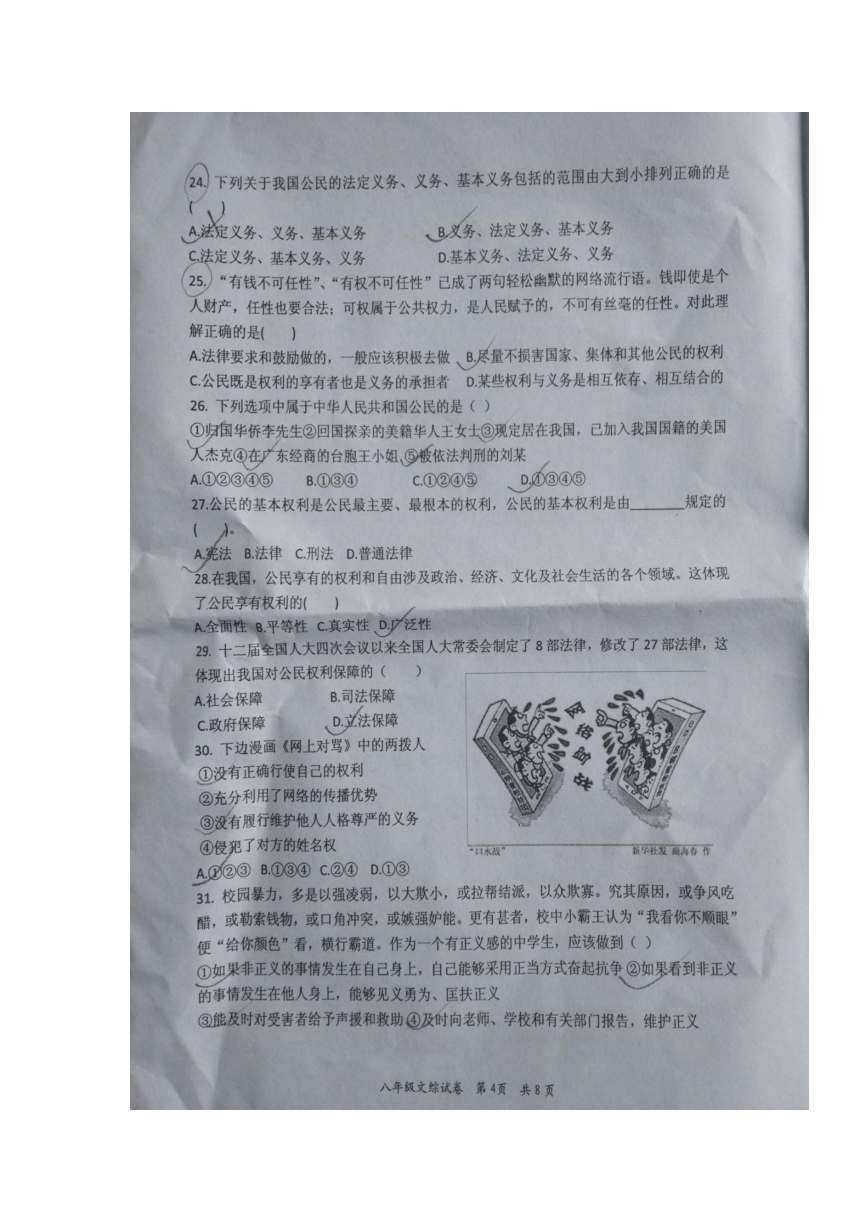 24. 下列关于我国公民的法定义务、义务、基本义务包括的范围由大到小排列正确的是
(    )
A.法定义务、义务、基本义务    B.义务、法定义务、基本义务
C.法定义务、基本义务、义务    D.基本义务、法定义务、义务
25. “有钱不可任性”、“有权不可任性”已成了两句轻松幽默的网络流行语。钱即使是个
人财产，任性也要合法；可权属于公共权力，是人民赋予的，不可有丝毫的任性。对此理
解正确的是(    )
A.法律要求和鼓励做的，一般应该积极去做  B.尽量不损害国家、集体和其他公民的权利
C.公民既是权利的享有者也是义务的承担者  D.某些权利与义务是相互依存、相互结合的
26. 下列选项中属于中华人民共和国公民的是（ ）
①归国华侨李先生②回国探亲的美籍华人王女士③现定居在我国，已加入我国国籍的美国
人杰克④在广东经商的台胞王小姐⑤被依法判刑的刘某
A.①②③④⑤    B.①③④    C.①②④⑤    D.①③④⑤
27.公民的基本权利是公民最主要、最根本的权利，公民的基本权利是由______规定的
(    )。
A.宪法  B.法律  C.刑法  D.普通法律
28.在我国，公民享有的权利和自由涉及政治、经济、文化及社会生活的各个领域。这体现
了公民享有权利的(    )
A.全面性 B.平等性 C.真实性 D.广泛性
29. 十二届全国人大四次会议以来全国人大常委会制定了8部法律，修改了27部法律，这
体现出我国对公民权利保障的（    ）
A.社会保障    B.司法保障
C.政府保障    D.立法保障
30. 下边漫画《网上对骂》中的两拨人
①没有正确行使自己的权利
②充分利用了网络的传播优势
③没有履行维护他人人格尊严的义务
④侵犯了对方的姓名权
A.①②③ B.①③④ C.②④ D.①③
网络骂战
“口水战”    新华社发    作
31. 校园暴力，多是以强凌弱，以大欺小，或拉帮结派，以众欺寡。究其原因，或争风吃
醋，或勒索钱物，或口角冲突，或嫉强妒能。更有甚者，校中小霸王认为“我看你不顺眼”
便“给你颜色”看，横行霸道。作为一个有正义感的中学生，应该做到（ ）
①如果非正义的事情发生在自己身上，自己能够采用正当方式奋起抗争 ②如果看到非正义
的事情发生在他人身上，能够见义勇为、匡扶正义
③能及时对受害者给予声援和救助④及时向老师、学校和有关部门报告，维护正义
八年级文综试卷  第4页  共8页